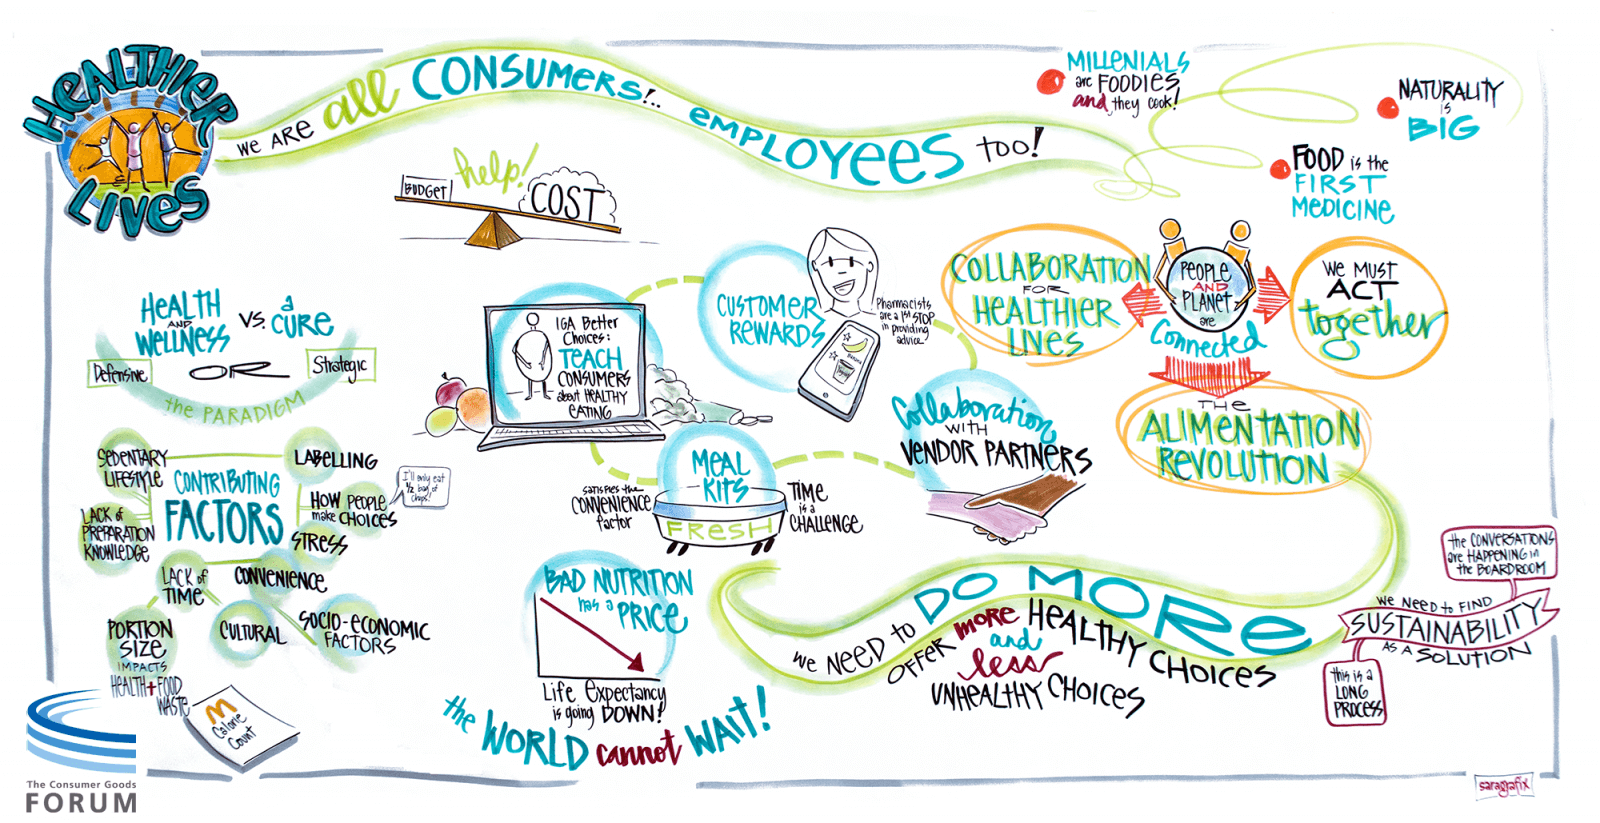 HEALTHIER
LIVES
WE ARE all CONSUMERS!.. EMPLOYEES TOO!
MILLENIALS
are FOODIES
and they cook!
NATURALITY
is
BIG
FOOD is the
FIRST
MEDICINE
help!
BUDGET
COST
HEALTH
AND
WELLNESS
VS.
a
CURE
Defensive
OR
Strategic
the PARADIGM
CONTRIBUTING
FACTORS
SEDENTARY
LIFESTYLE
LABELLING
HOW PEOPLE
make CHOICES
I'll only eat
1/2 bag of
chips!
LACK of
PREPARATION
KNOWLEDGE
STRESS
LACK of
TIME
CONVENIENCE
CULTURAL
SOCIO-ECONOMIC
FACTORS
PORTION
SIZE
IMPACTS
HEALTH + FOOD
WASTE
M
Calorie
Count
IGA Better
Choices:
TEACH
CONSUMERS
about HEALTHY
EATING
CUSTOMER
REWARDS
Pharmacists
are a 1st STOP
in providing
advice
MEAL
KITS
FRESH
satisfies the
CONVENIENCE
factor
TIME
is a
CHALLENGE
Collaboration
WITH
VENDOR PARTNERS
COLLABORATION
FOR
HEALTHIER
LIVES
PEOPLE
AND
PLANET
are
Connected
WE MUST
ACT
together
THE
ALIMENTATION
REVOLUTION
BAD NUTRITION
has a PRICE
Life Expectancy
is going DOWN!
the WORLD cannot WAIT!
WE NEED TO DO MORE
OFFER more HEALTHY CHOICES
and
less
UNHEALTHY CHOICES
the CONVERSATIONS
are HAPPENING in
the BOARDROOM
WE NEED to FIND
SUSTAINABILITY
AS A SOLUTION
this is a
LONG
PROCESS
The Consumer Goods
FORUM
saragrafix